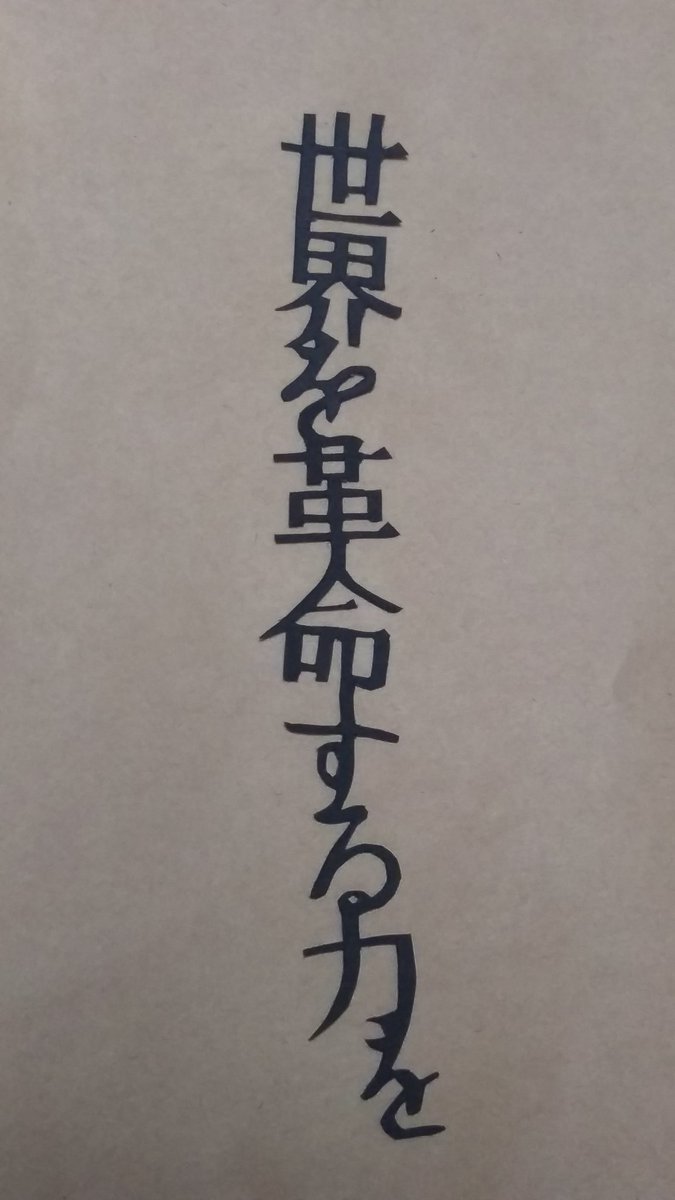 世界を革命する力を